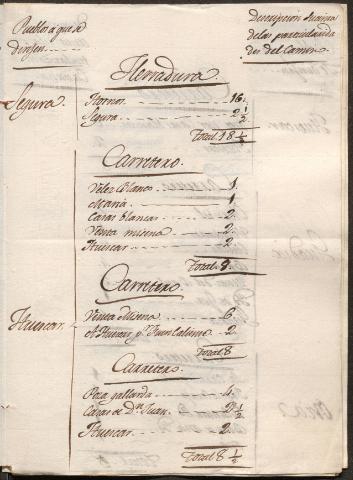 Pueblos a que se
dirijen
Descripcion Succinta
de las particularida
des del Camino
Herradura.
Segura. Hornos 16.
Segura 2 1/2
Total 18 1/2
Carretero.
Velez Blanco 1.
Maria 1.
Casas blancas 2.
Venta micena 2.
Huescar 2.
Total 8.
Carretero.
Huescar. Venta Micena 6.
A Huescar pr 2.
Total 8
Carretero.
Poza gallarda 4.
Casas de Dn. Juan 2 1/2
Huescar 2.
Total 8 1/2